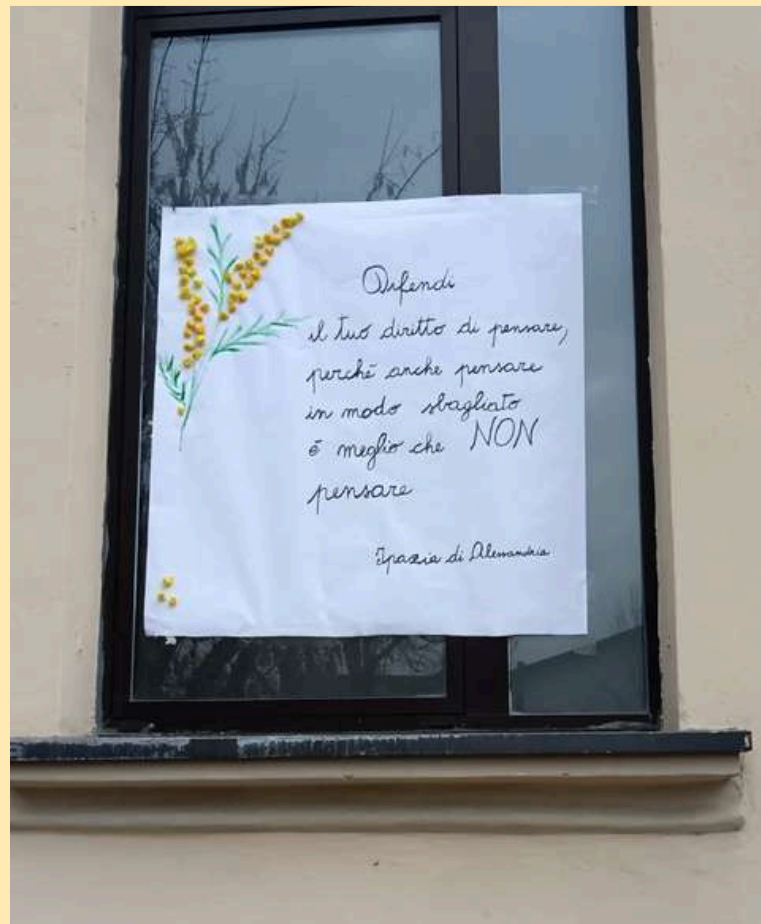 Difendi
il tuo diritto di pensare,
perché anche pensare
in modo sbagliato
é meglio che NON
pensare
Ipazia di Alessandria